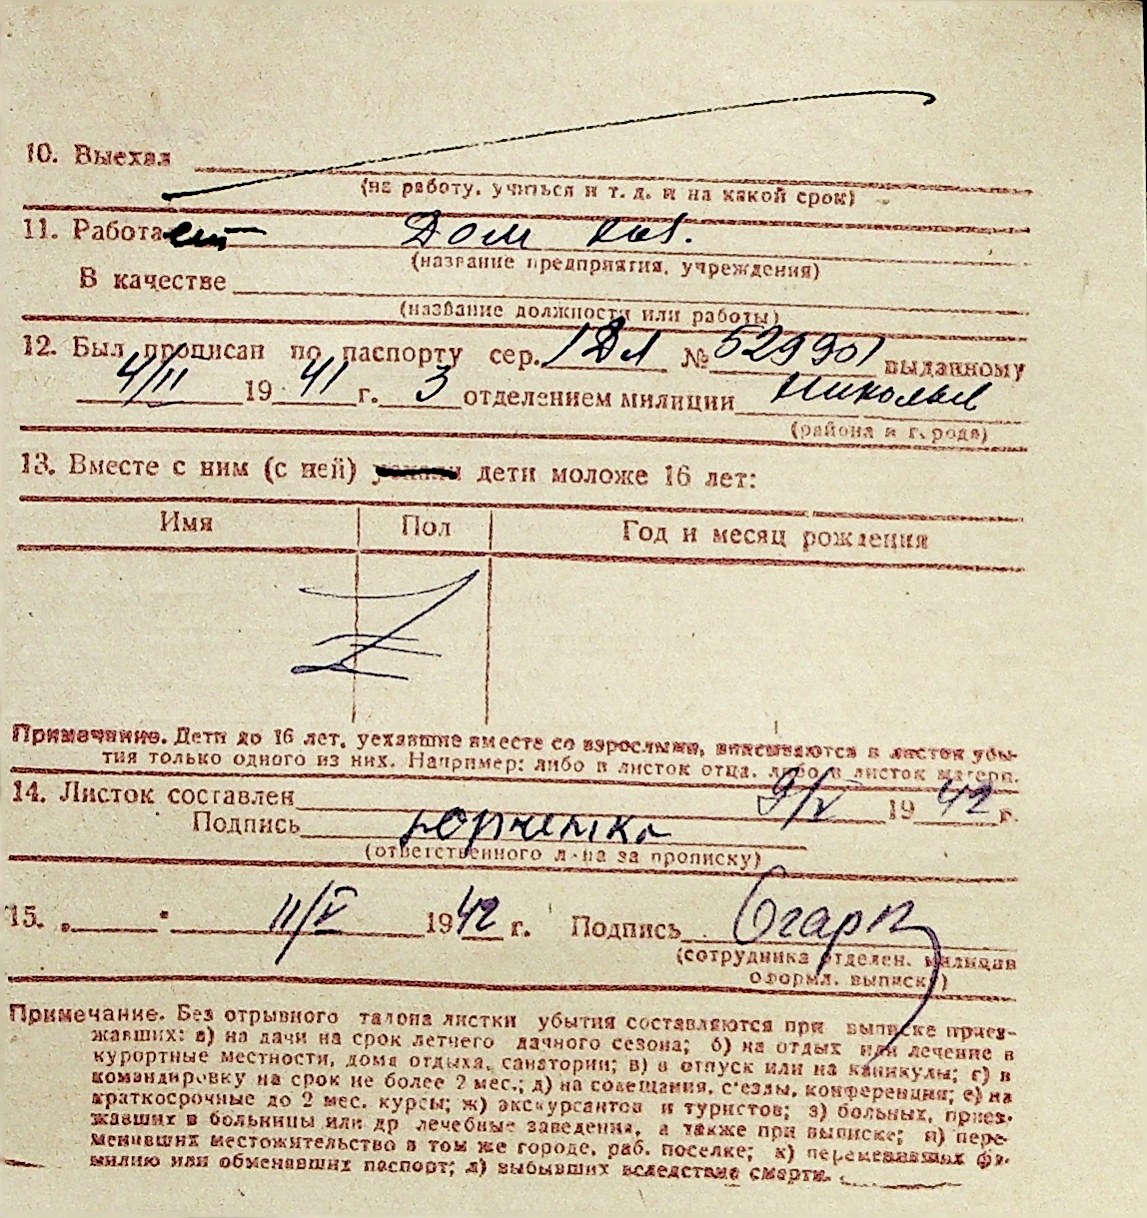 10. Выехал
(на работу, учиться и т. д. и на какой срок)
11. Работает Дом хоз.
(название предприятия, учреждения)
В качестве
(название должности или работы)
12. Был прописан по паспорту сер. № 529901 выданному
4/II 1941 г. 3 отделением милиции Николаев
(района и города)
13. Вместе с ним (с ней) уехали дети моложе 16 лет:
Имя Пол Год и месяц рождения
Примечание. Дети до 16 лет, уехавшие вместе со взрослыми, вписываются в листок убы-
тия только одного из них. Например: либо в листок отца, либо в листок матери.
14. Листок составлен 9/V 1942 г.
Подпись
(ответственного л-ца за прописку)
15. „ " 11/V 1942 г. Подпись Огарк
(сотрудника отделен. милиции
оформл. выписку)
Примечание. Без отрывного талона листки убытия составляются при выписке приез-
жавших: а) на дачи на срок летнего дачного сезона; б) на отдых или лечение в
курортные местности, дома отдыха, санатории; в) в отпуск или на каникулы; г) в
командировку на срок не более 2 мес.; д) на совещания, с'езды, конференции; е) на
краткосрочные до 2 мес. курсы; ж) экскурсантов и туристов; з) больных, приез-
жавших в больницы или др лечебные заведения, а также при выписке; и) пере-
менивших местожительство в том же городе, раб. поселке; к) переменивших фа-
милию или обменавших паспорт; л) выбывших вследствие смерти.